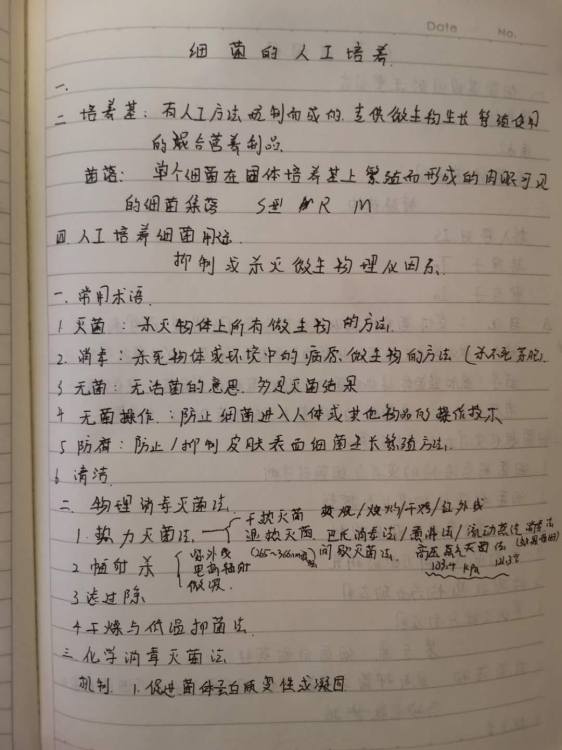 Date No.
细菌的人工培养
一.
二 培养基：有人工方法配制而成的.专供微生物生长繁殖使用
的混合营养制品.
菌落：单个细菌在固体培养基上繁殖而形成的肉眼可见
的细菌集落 S型 R M
四.人工培养细菌用途.
抑制或杀灭微生物理化因素.
一.常用术语.
1 灭菌：杀灭物体上所有微生物的方法.
2.消毒：杀死物体或环境中的病原微生物的方法（杀不死芽胞.
3 无菌：无活菌的意思.多见灭菌结果
4 无菌操作.：防止细菌进入人体或其他物品的操作技术
5 防腐：防止/抑制皮肤表面细菌生长繁殖方法.
6 清洁.
二.物理消毒灭菌法.
干热灭菌 焚烧/烧灼/干烤/红外线
1.热力灭菌法 湿热灭菌.巴氏消毒法/煮沸法/流动蒸汽消毒法
2 辐射杀 紫外线 (265~266nm) 间歇灭菌法. 高压蒸气灭菌法
电离辐射 103.4 kPa 121.3℃
微波.
3 滤过除
4.干燥与低温抑菌法.
三.化学消毒灭菌法.
机制. 1.促进菌体蛋白质变性或凝固.